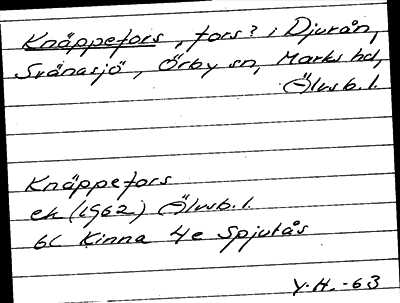 Knäppefors, fors? i Djurån,
Svänasjö, Örby sn, Marks hd,
Älvsb. l.
Knäppefors
ek (1962) Älvsb. l.
6C Kinna 4e Spjutås
Y.H. -63